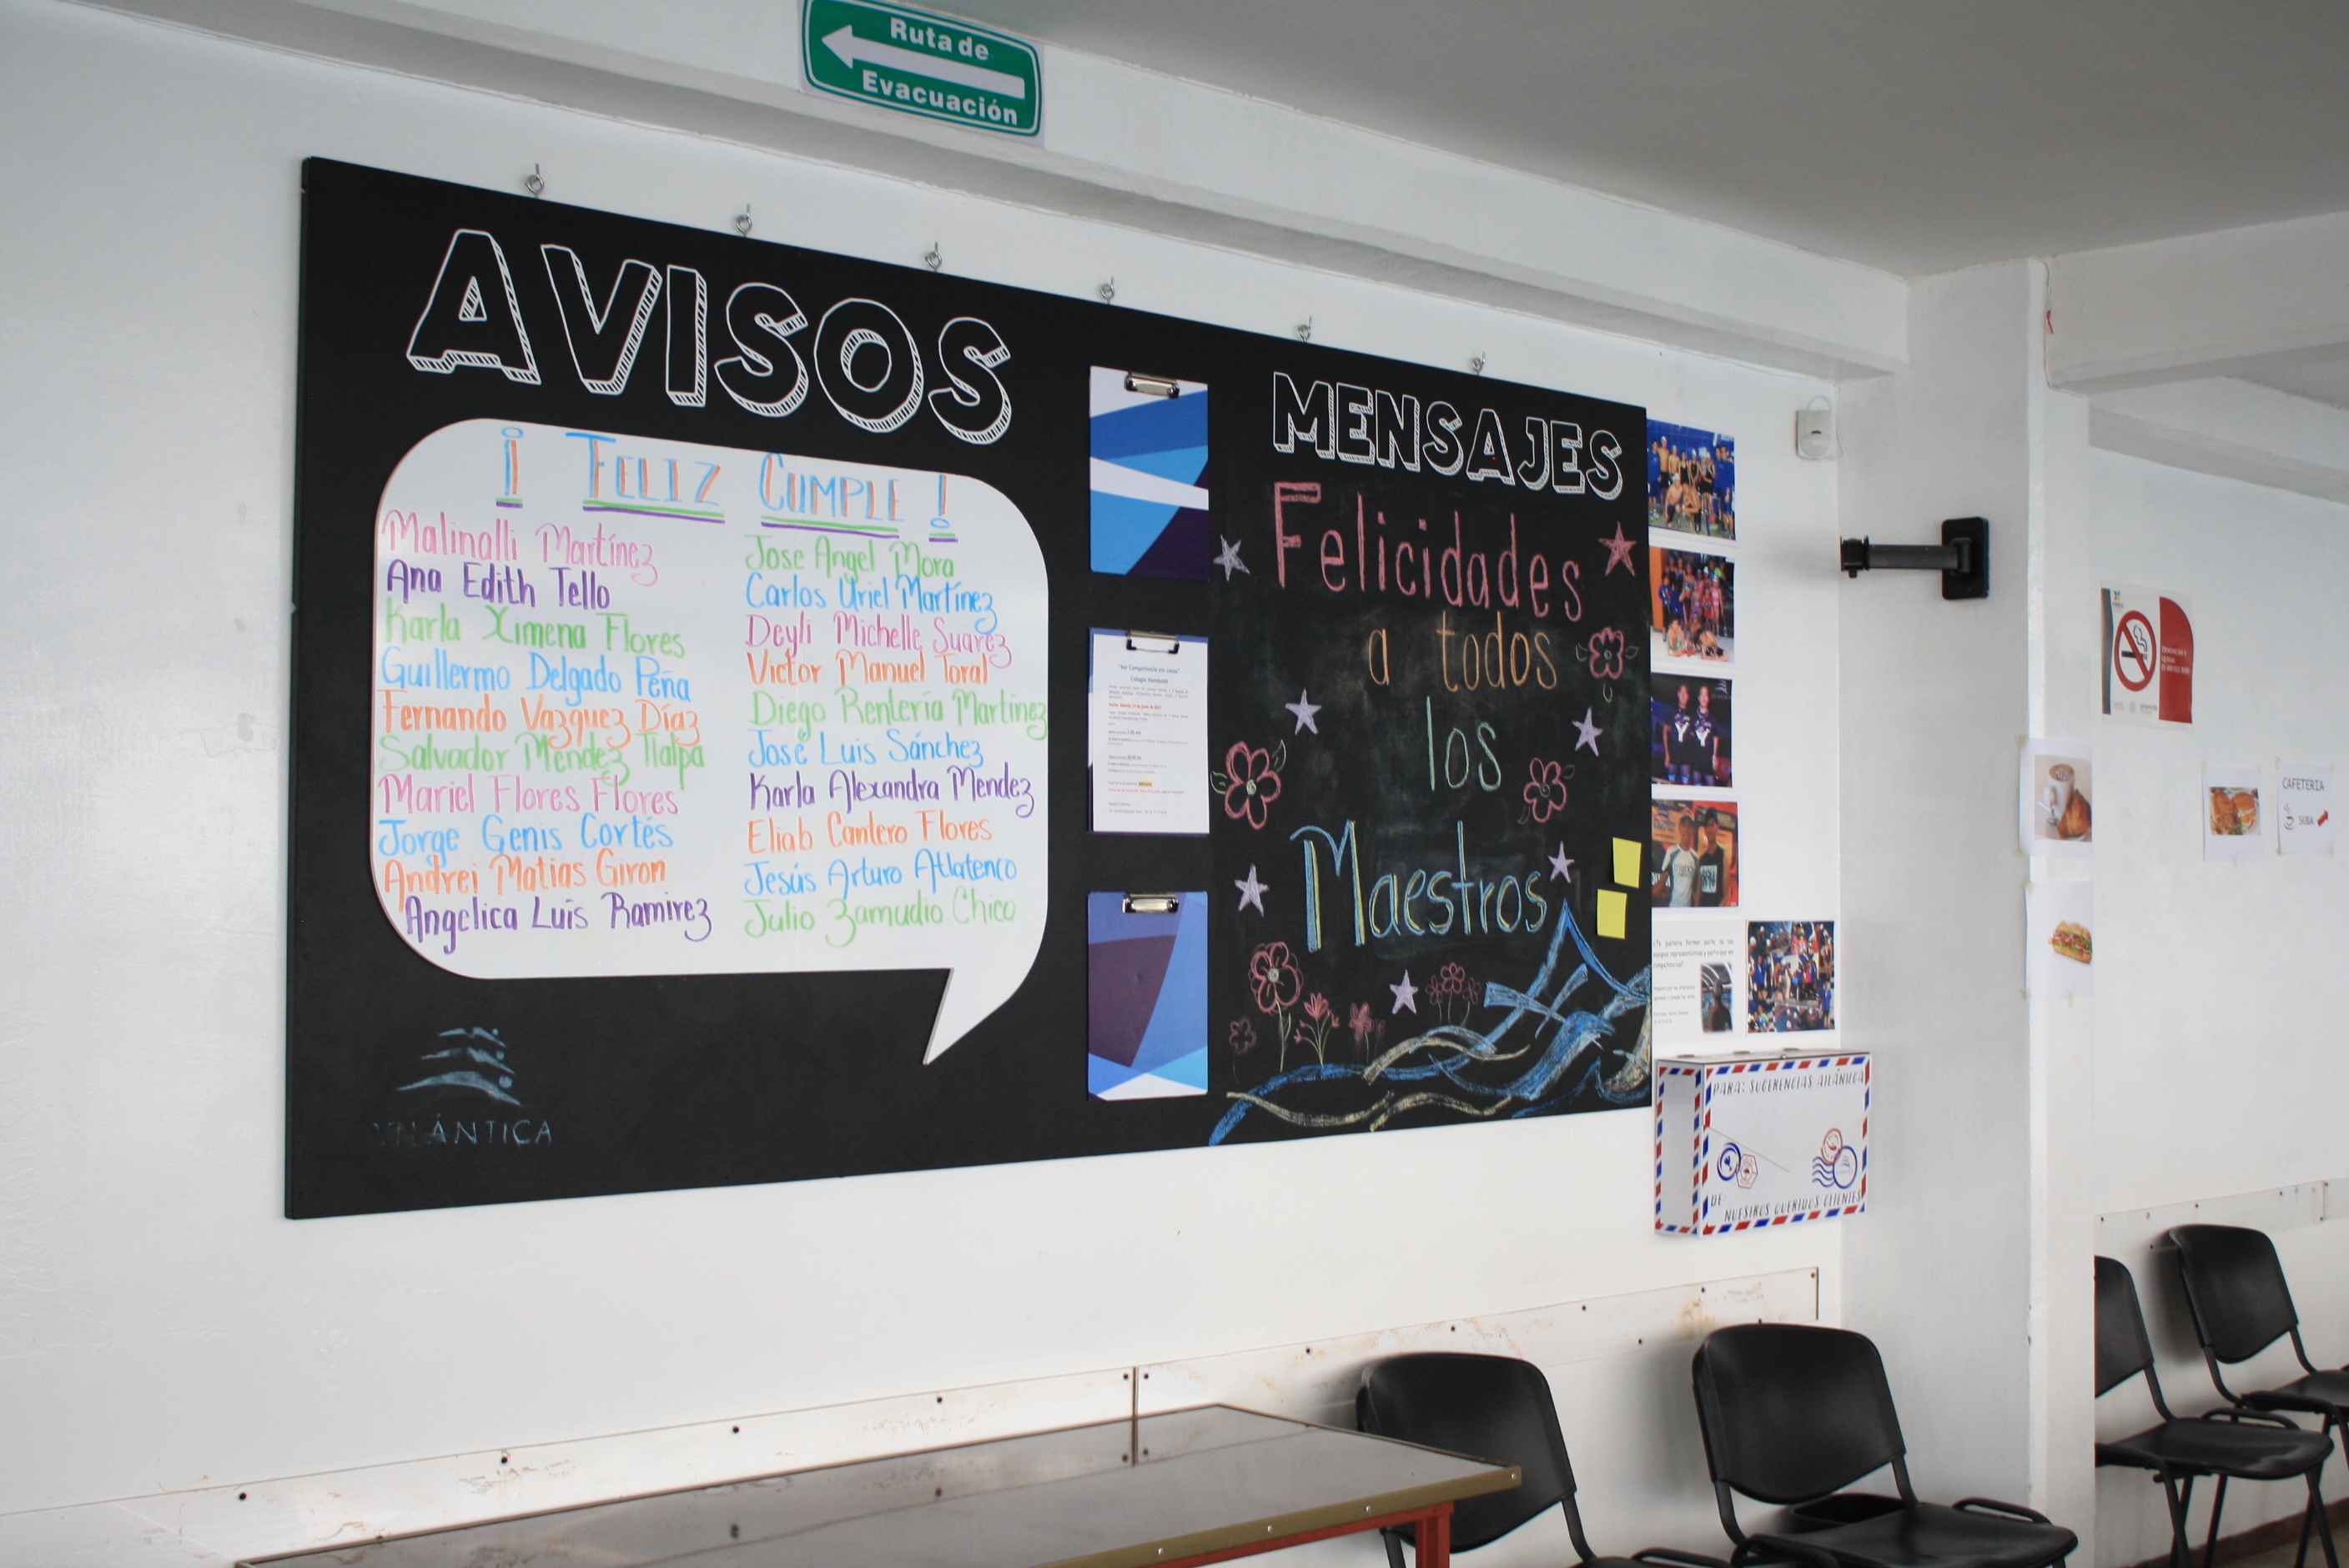 Ruta de
Evacuación
AVISOS
¡ FELIZ CUMPLE !
Malinalli Martínez
Ana Edith Tello
Karla Ximena Flores
Guillermo Delgado Peña
Fernando Vazquez Díaz
Salvador Mendez Tlalpa
Mariel Flores Flores
Jorge Genis Cortés
Andrei Matias Giron
Angelica Luis Ramirez
Jose Angel Mora
Carlos Uriel Martínez
Deyli Michelle Suarez
Victor Manuel Toral
Diego Rentería Martinez
José Luis Sánchez
Karla Alexandra Mendez
Eliab Cantero Flores
Jesús Arturo Atlatenco
Julio Zamudio Chico
ATLÁNTICA
MENSAJES
Felicidades
a todos
los
Maestros
¿Te gustaría formar parte de los
equipos representativos y participar en
competencias?
PARA: SUGERENCIAS ATLÁNTICA
DE:
NUESTROS QUERIDOS CLIENTES
CAFETERIA
SUBA